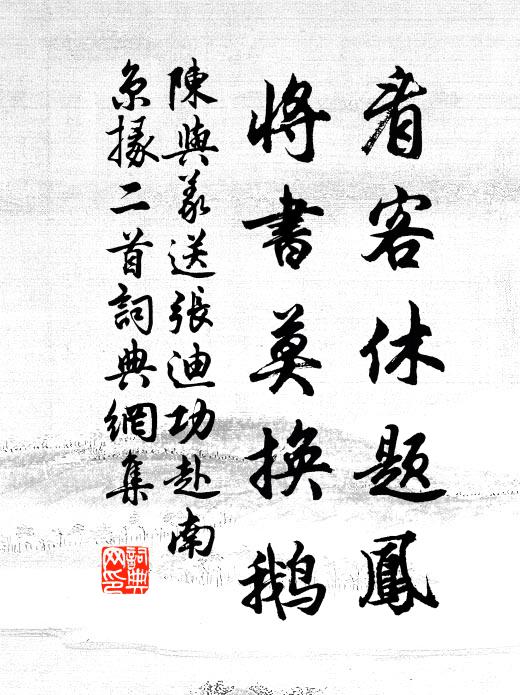 看客休題鳳
將書莫換鵝
陳與義送張迪功赴南
京掾二首詞典網集
詞典網印